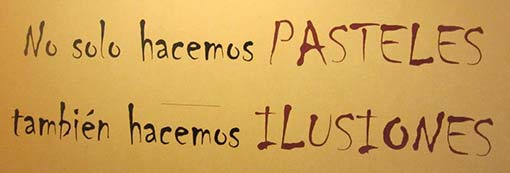 No solo hacemos PASTELES
también hacemos ILUSIONES